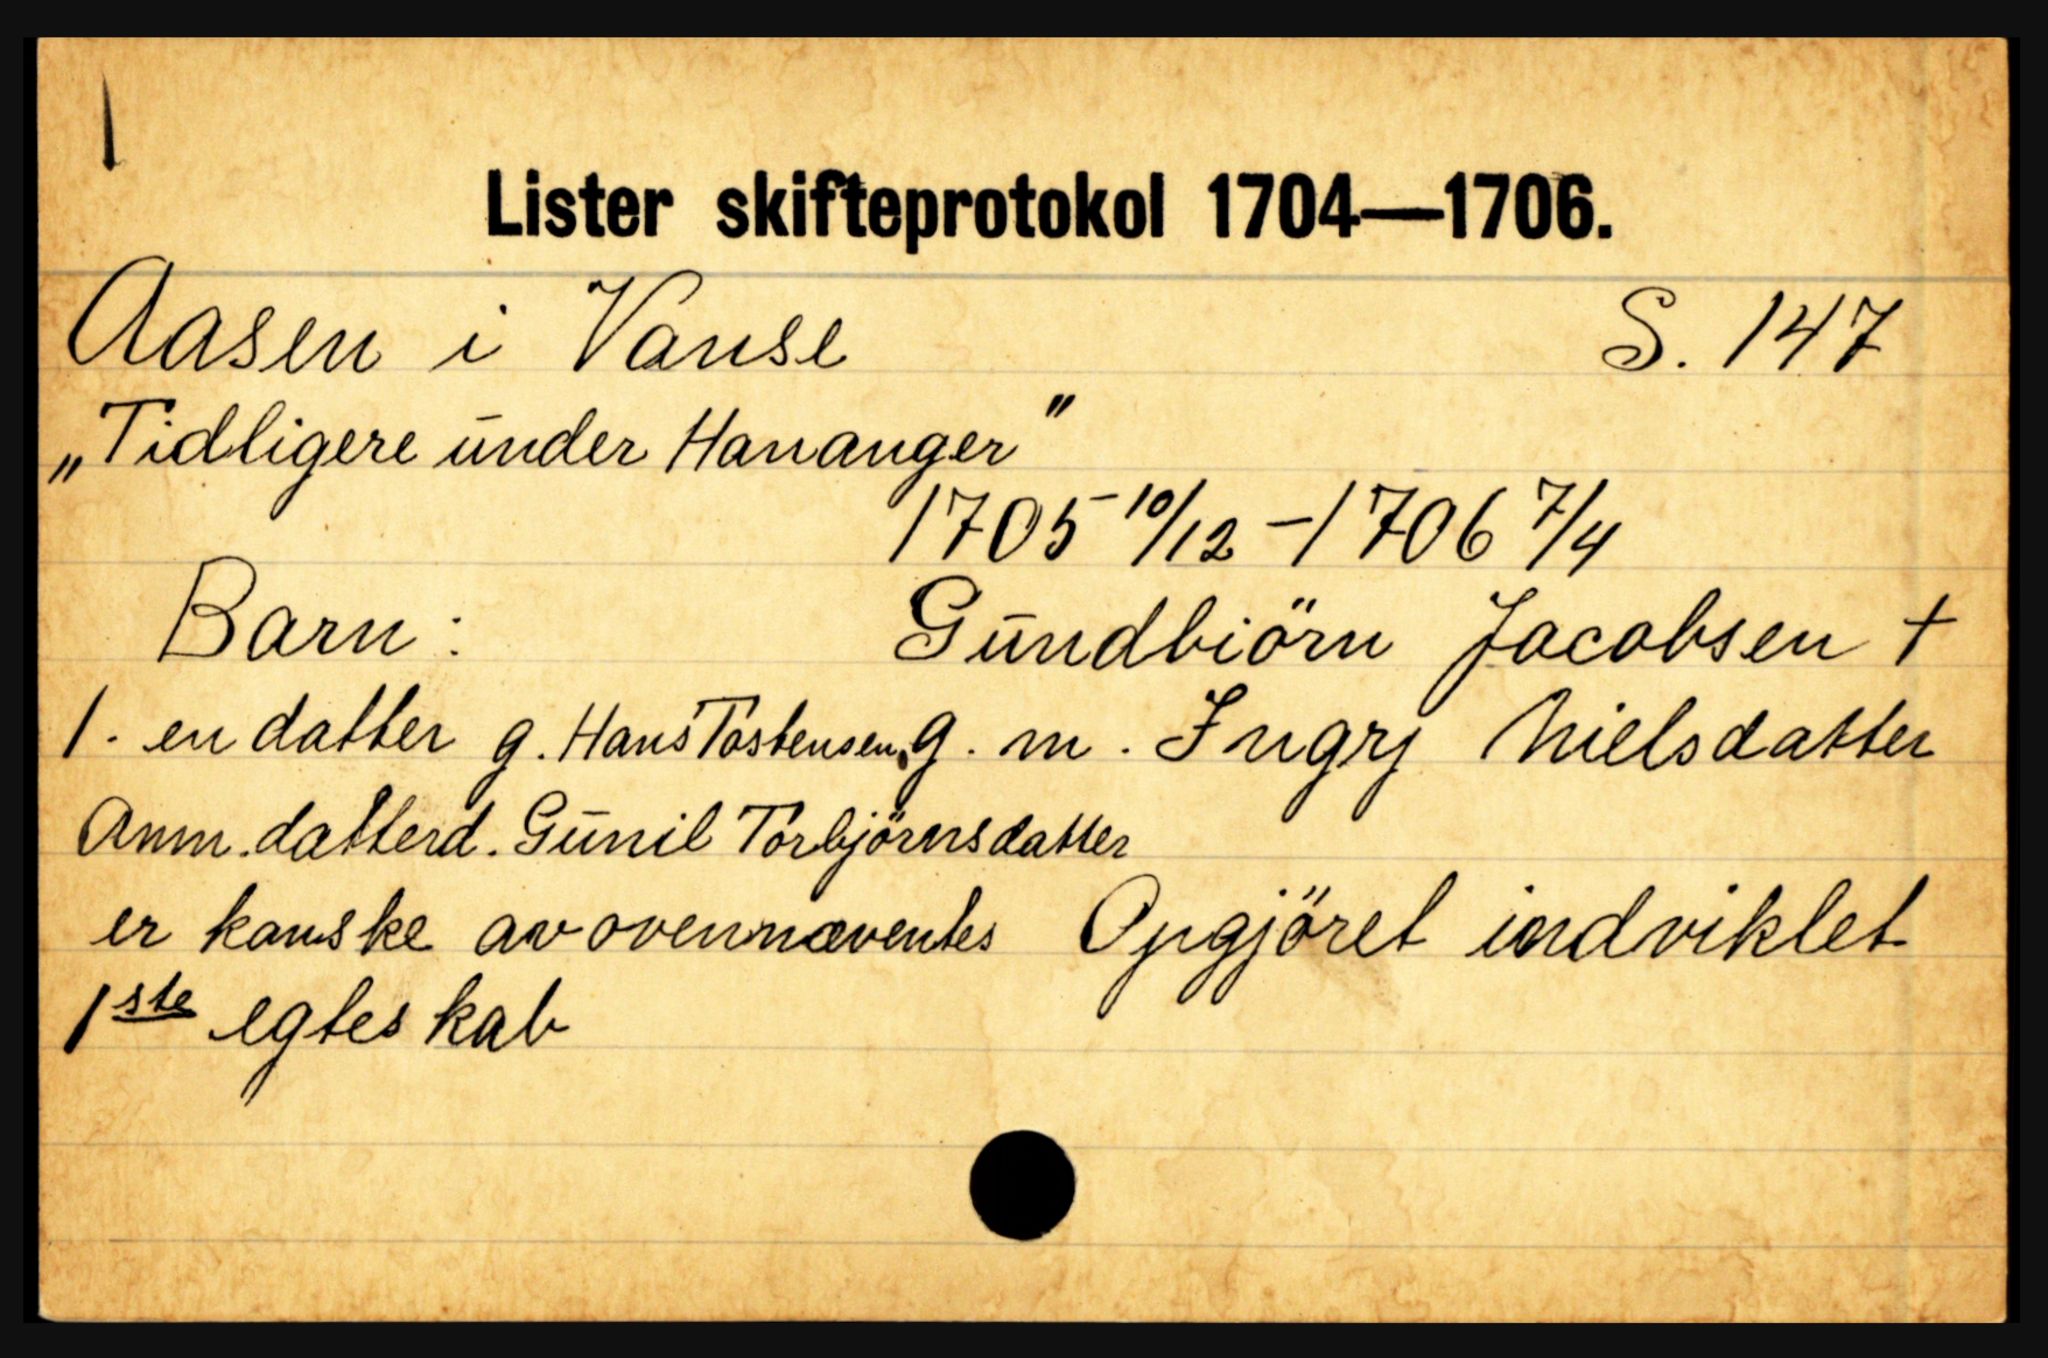 Lister skifteprotokol 1704—1706.
Aasen i Vanse S. 147
„Tidligere under Hananger"
1705 10/12 - 1706 7/4
Barn: Gundbiörn Jacobsen +
1. en datter g. Hans Tostensen, g. m. Ingrj Nielsdatter
Anm. datterd. Gunil Torbjörnsdatter
er kanske av ovennæventes Opgjöret indviklet
1ste egteskab